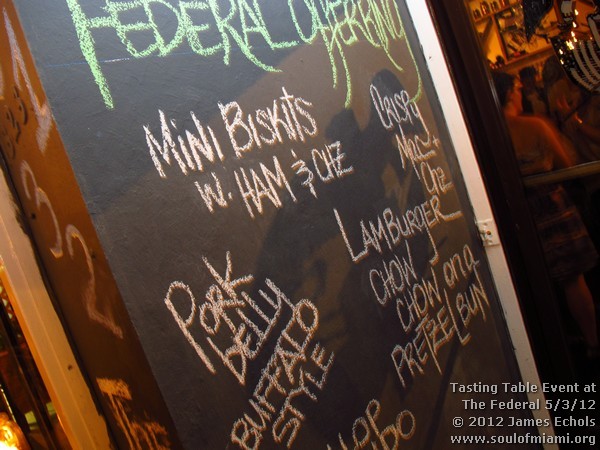 Federal Offering
Mini Biskits
w. Ham & Chz
Crispy
Mac
Chz
Lamburger
Chow
Chow on a
Pretzel Bun
Pork
Belly
Buffalo
Style
Tasting Table Event at
The Federal 5/3/12
© 2012 James Echols
www.soulofmiami.org